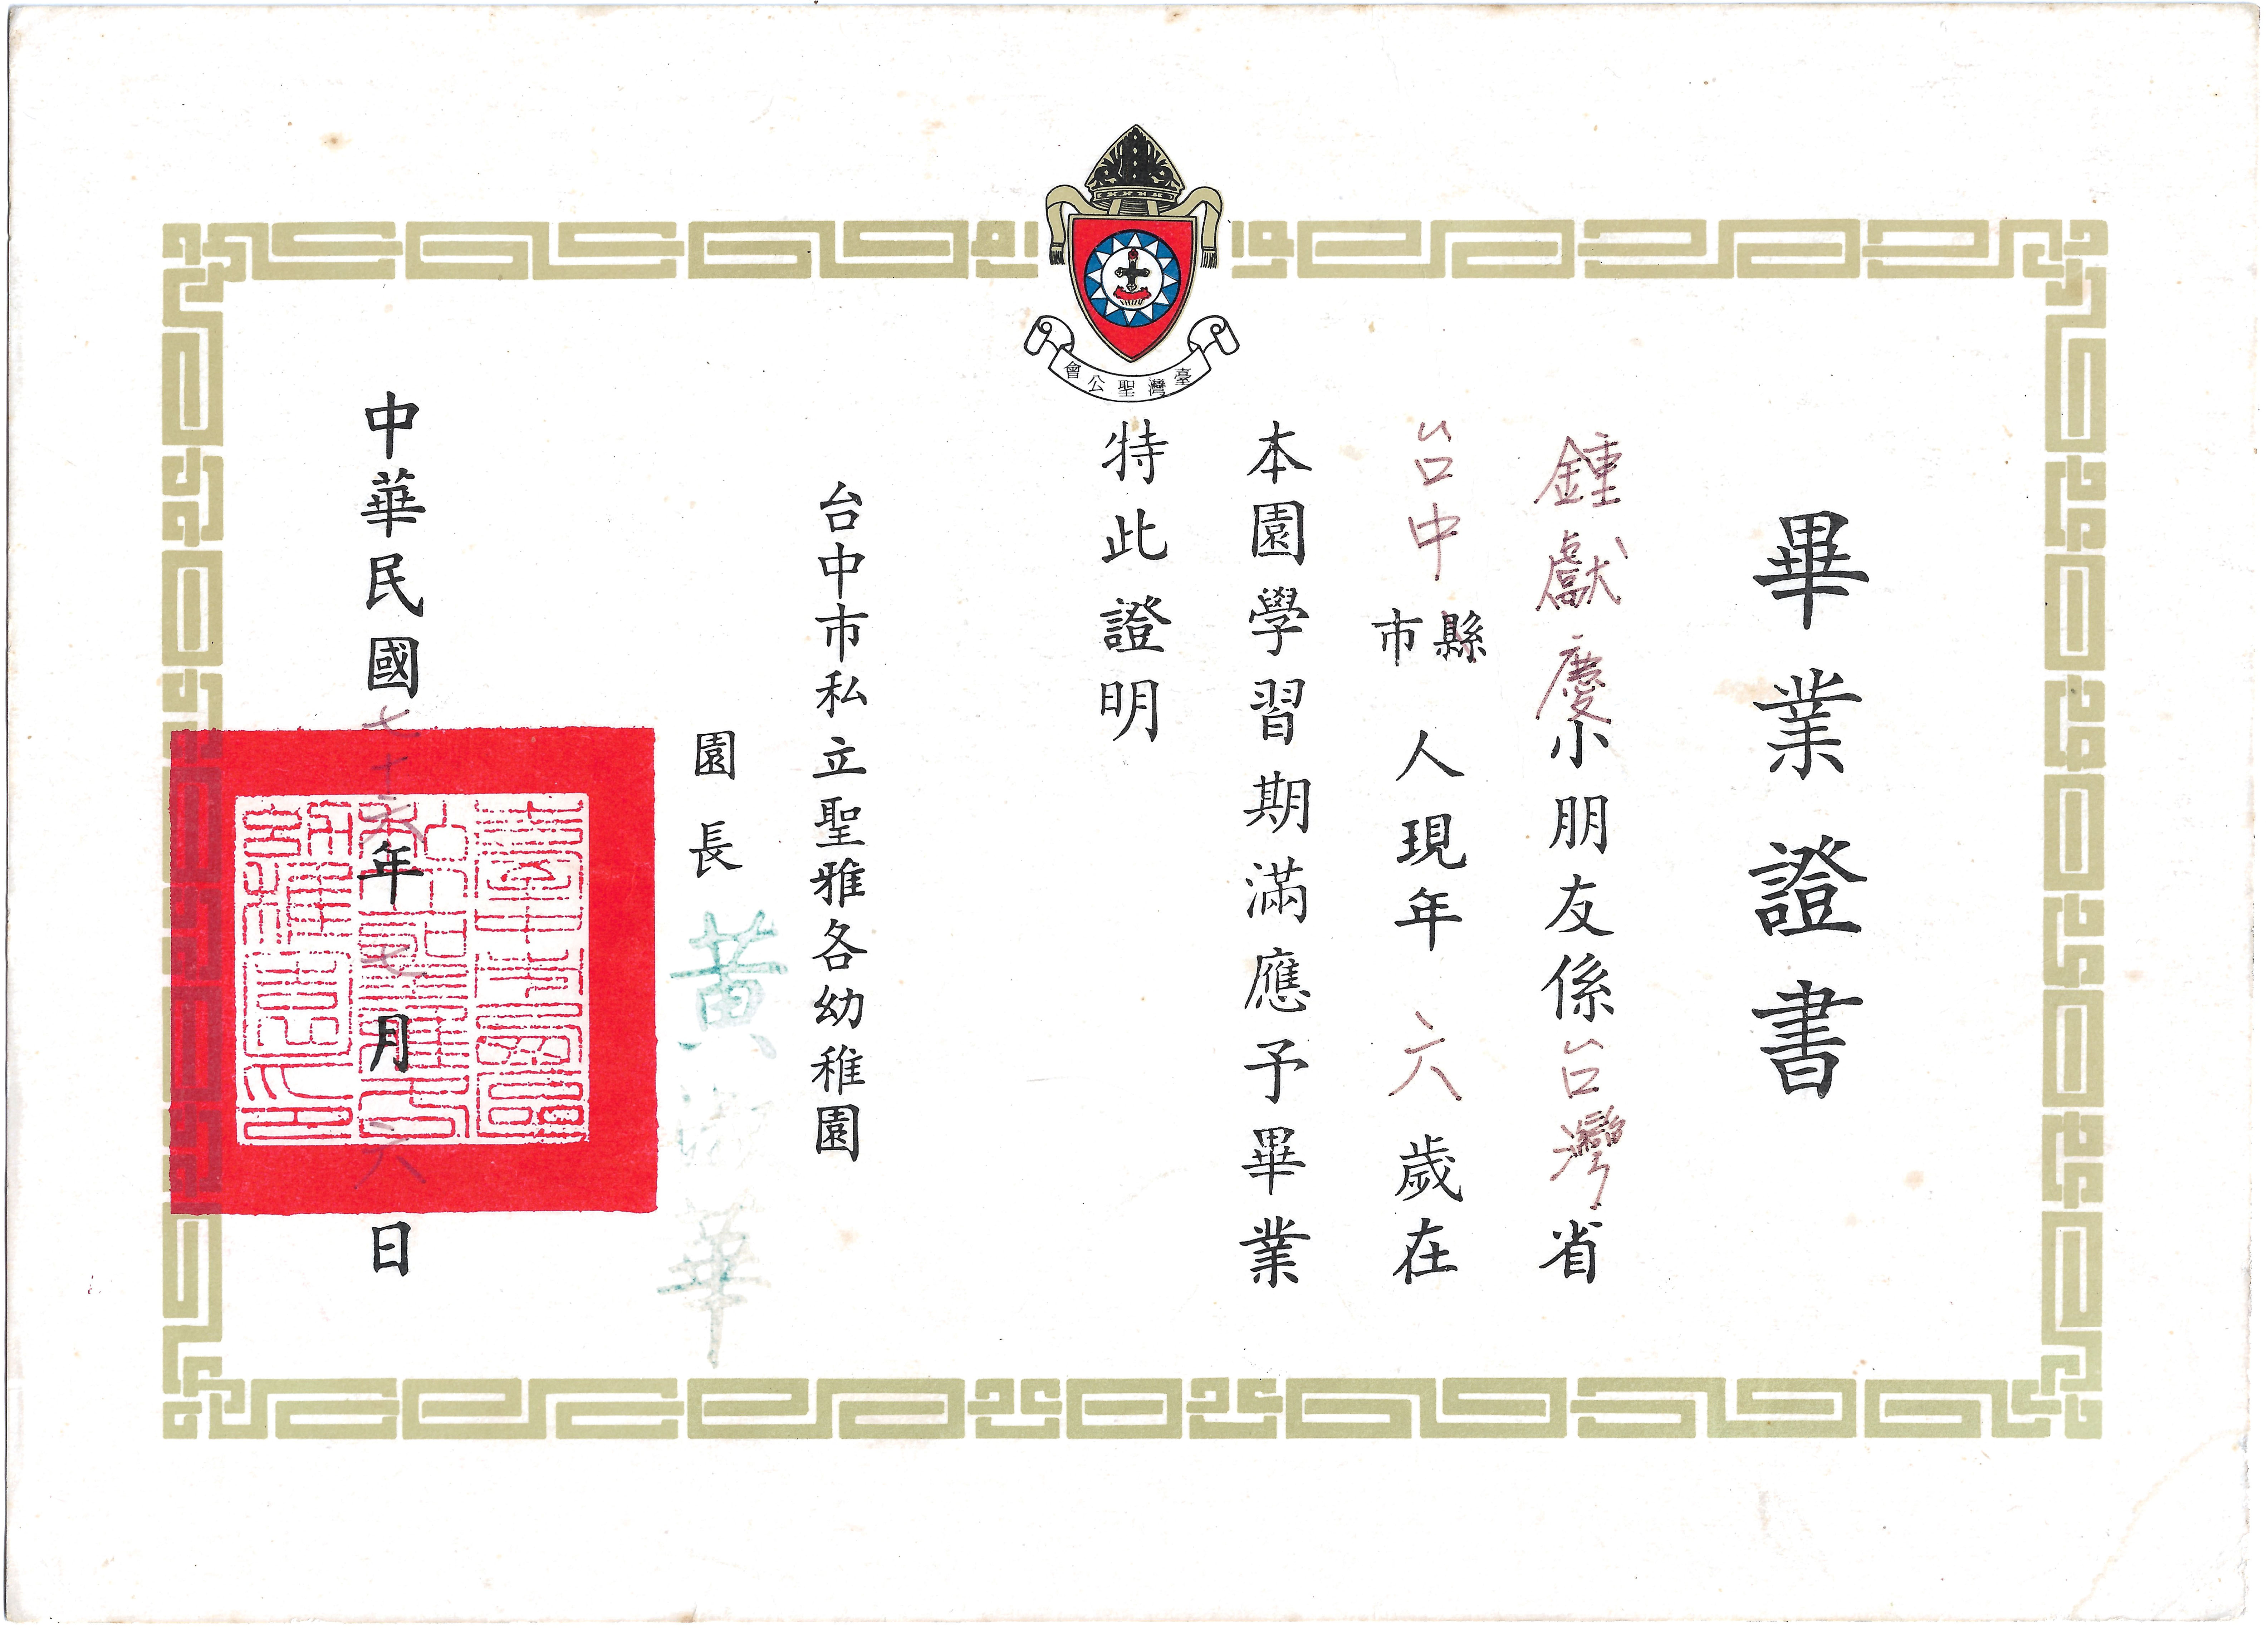 臺灣聖公會
畢業證書
鍾獻慶小朋友係台灣省
台中縣市人現年六歲在
本園學習期滿應予畢業
特此證明
台中市私立聖雅各幼稚園
園長 黃 華
中華民國七十六年七月六日